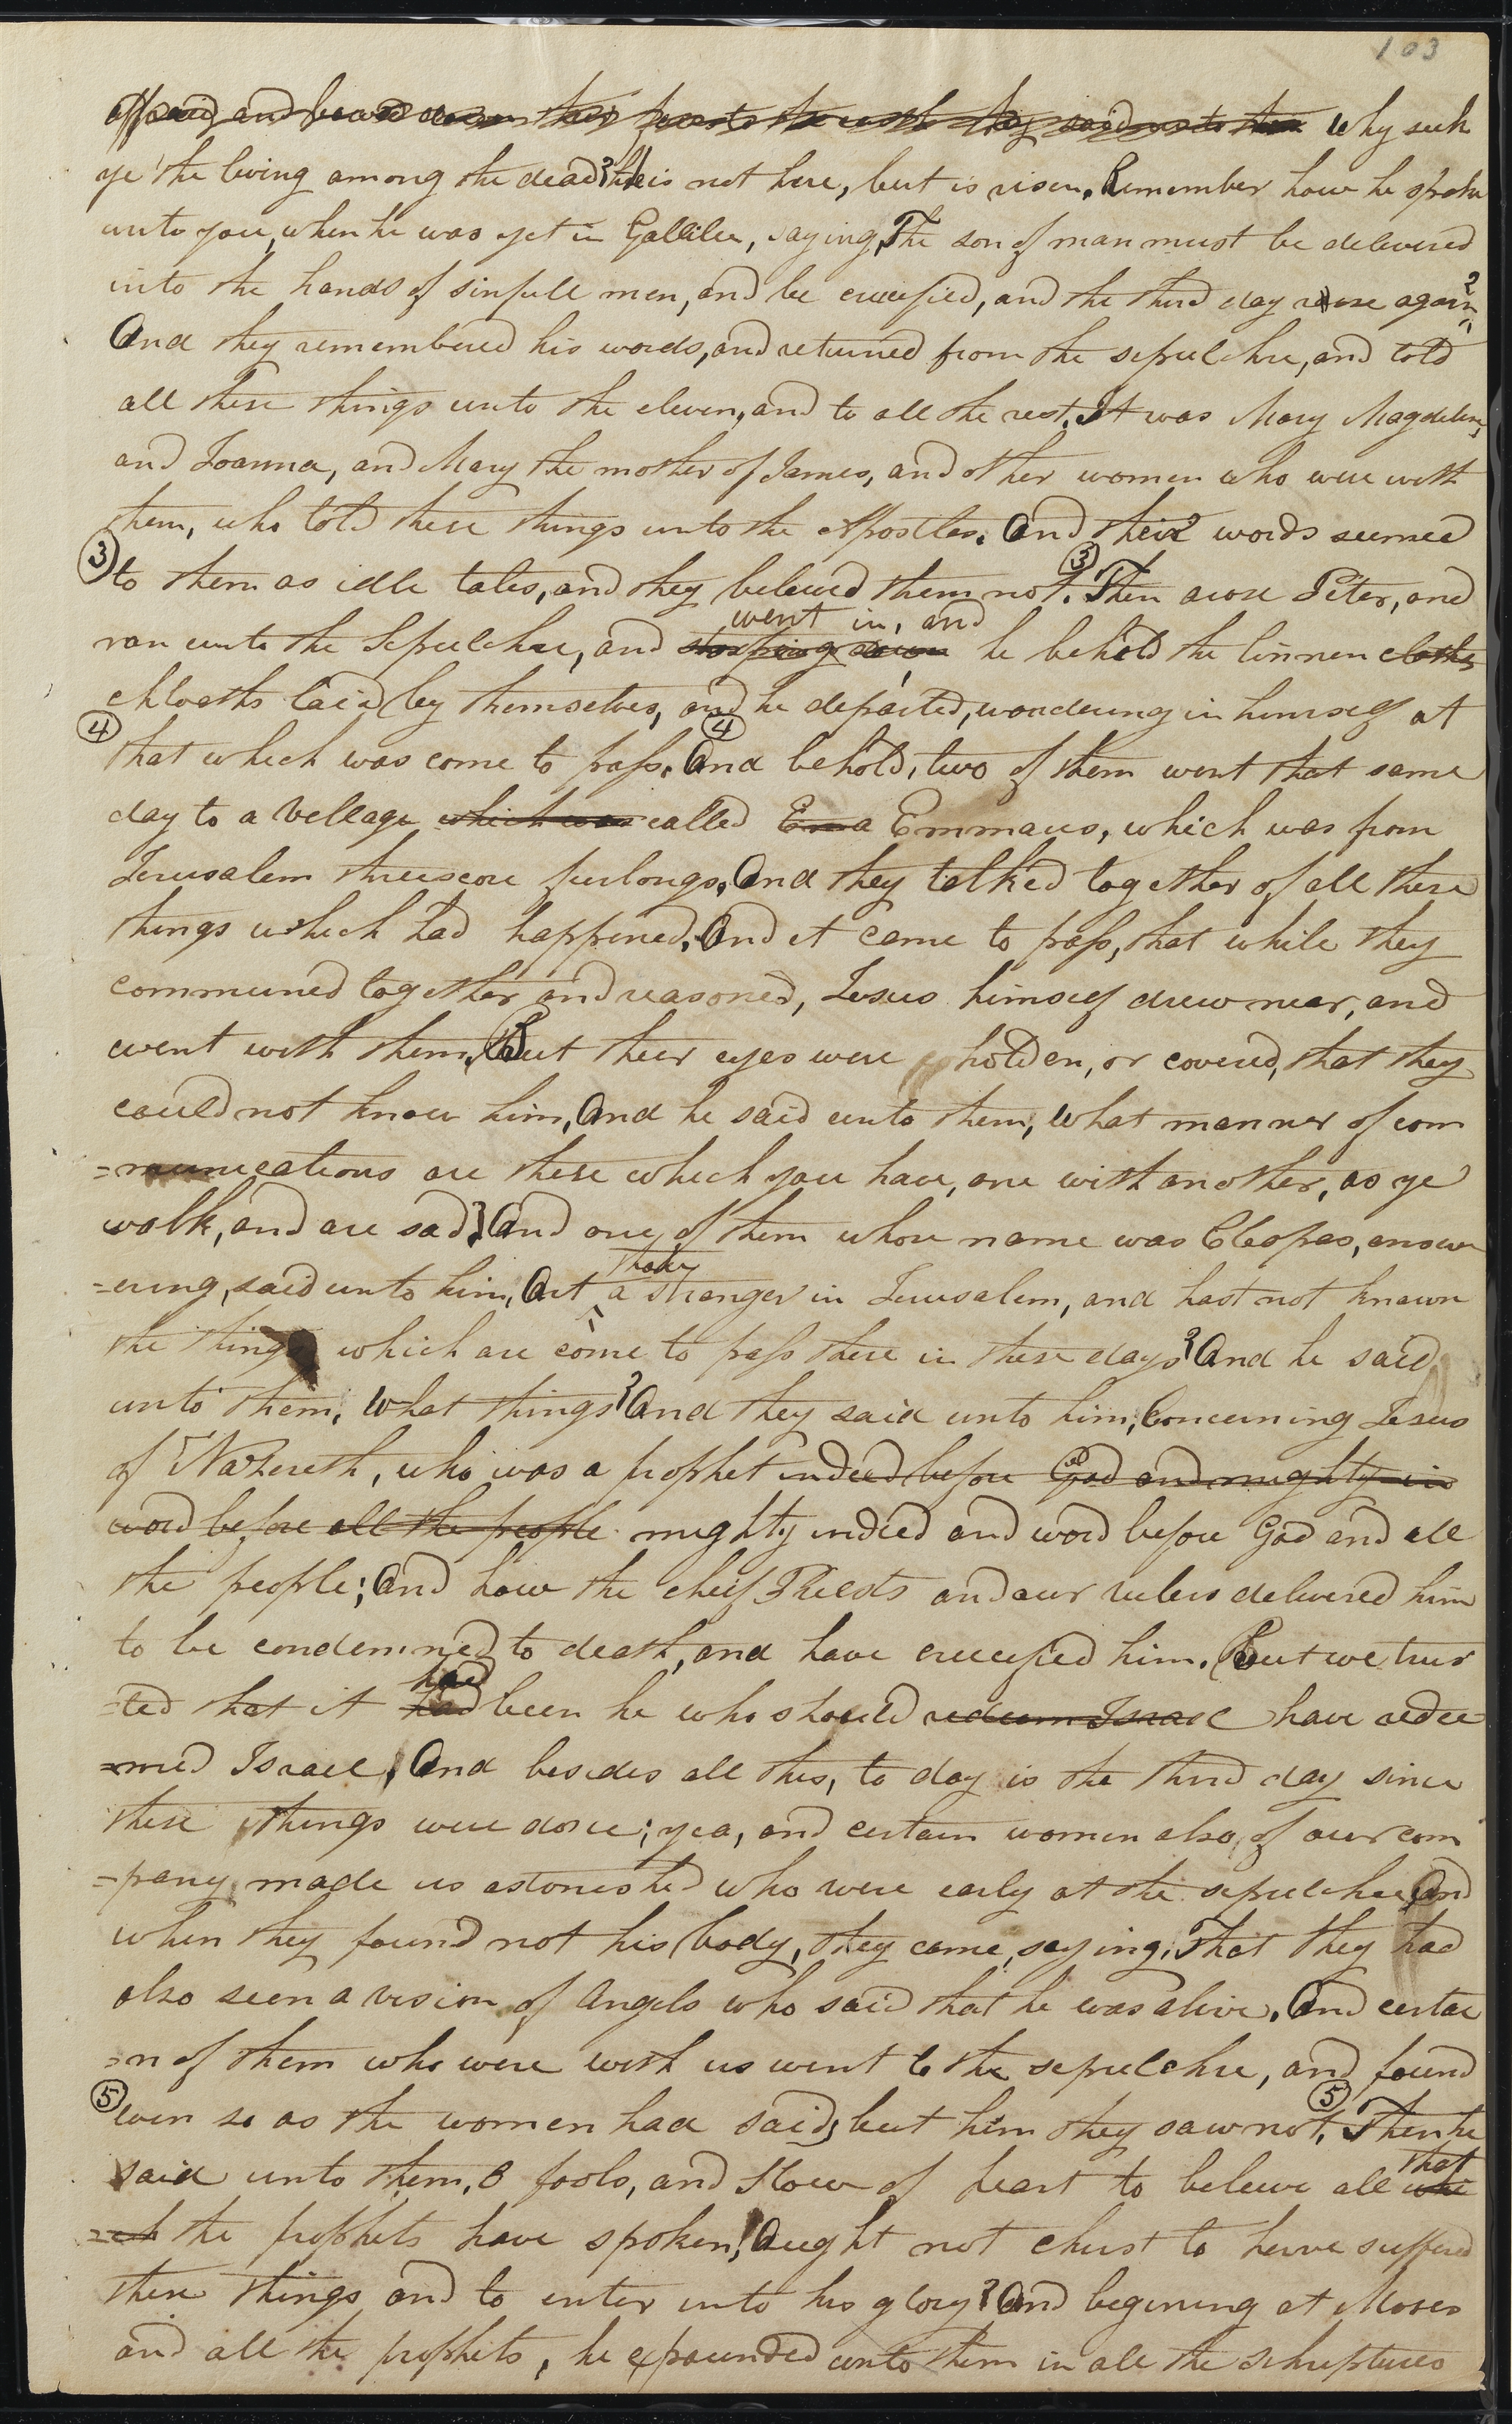 103
affraid, and bowed down their faces to the earth they said unto them Why seek
ye the living among the dead? he is not here, but is risen. Remember how he spoke
unto you, when he was yet in Gallilee, saying, The son of man must be delivered
into the hands of sinfull men, and be crucified, and the third day rise again?
And they remembered his words, and returned from the sepulchre, and told
all these things unto the eleven, and to all the rest. It was Mary Magdelene,
and Joanna, and Mary the mother of James, and other women who were with
them, who told these things unto the Apostles. And their words seemed
3 to them as idle tales, and they believed them not. 3 Then arose Peter, and
went in, and
ran unto the Sepulchre, and stooping down he beheld the linnen cloths
cloths laid by themselves, and he departed, wondering in himself at
4 that which was come to pass. 4 And behold, two of them went that same
day to a village which was called Ema Emmaus, which was from
Jerusalem threescore furlongs. And they talked together of all these
things which had happened. And it came to pass, that while they
communed together and reasoned, Jesus himself drew near, and
went with them. But their eyes were holden, or covered, that they
could not know him, And he said unto them, What manner of com
=munications are these which you have, one with another, as ye
walk, and are sad? And one of them whose name was Cleopas, answ
thou
=ering, said unto him, Art a stranger in Jerusalem, and hast not known
the things which are come to pass there in these days? And he said
unto them, What things? And they said unto him, Concerning Jesus
of Nazereth, who was a prophet indeed before God and mighty in
word before all the people mighty indeed and word before God and all
the people; And how the cheif Priests and our rulers delivered him
to be condemned to death, and have crucified him. But we trus
had
=ted that it had been he who should redeem Israel have redee
=med Israel, And besides all this, to day is the third day since
these things were done; yea, and certain women also, of our com
=pany made us astonished who were early at the sepulchre And
when they found not his body, they came, saying, That they had
also seen a vision of Angels who said that he was alive. And certai
=n of them who were with us went to the sepulchre, and found
5 even so as the women had said; but him they saw not. 5 Then he
that
said unto them, O fools, and slow of heart to believe all whi
=ch the prophets have spoken! Aught not christ to have suffered
these things and to enter into his glory? And begining at Moses
and all the prophets, he expounded unto them in all the schriptures